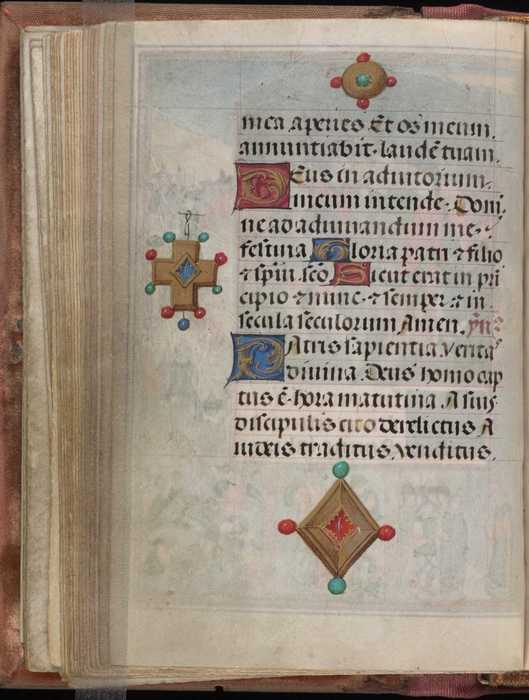 mea aperies. Et os meum.
annuntiabit. laudē tuam.
Deus in adiutorium.
meum intende. Domi
ne ad adiuuandum me.
festina. Gloria patri ⁊ filio
⁊ spiri. scō. Sicut erat in pri
cipio ⁊ nunc. ⁊ semper. ⁊ in
secula seculorum Amen. ym
Patris sapientia verita
diuina. Deus homo cap
tus ē. hora matutina. A suis
discipulis cito derelictus A
iudeis traditus. venditus.